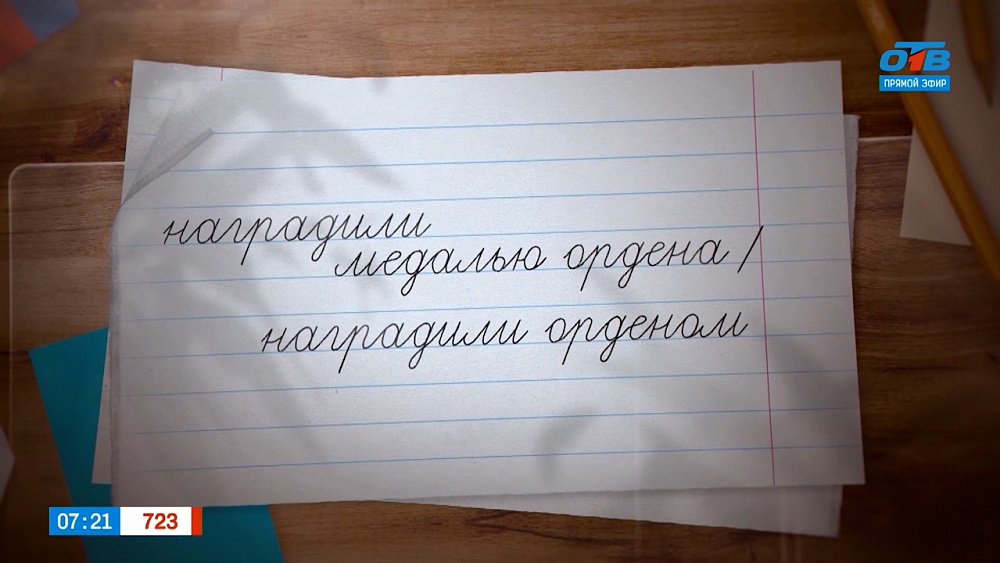 ОТВ
ПРЯМОЙ ЭФИР
наградили
медалью ордена /
наградили орденом
07:21 723